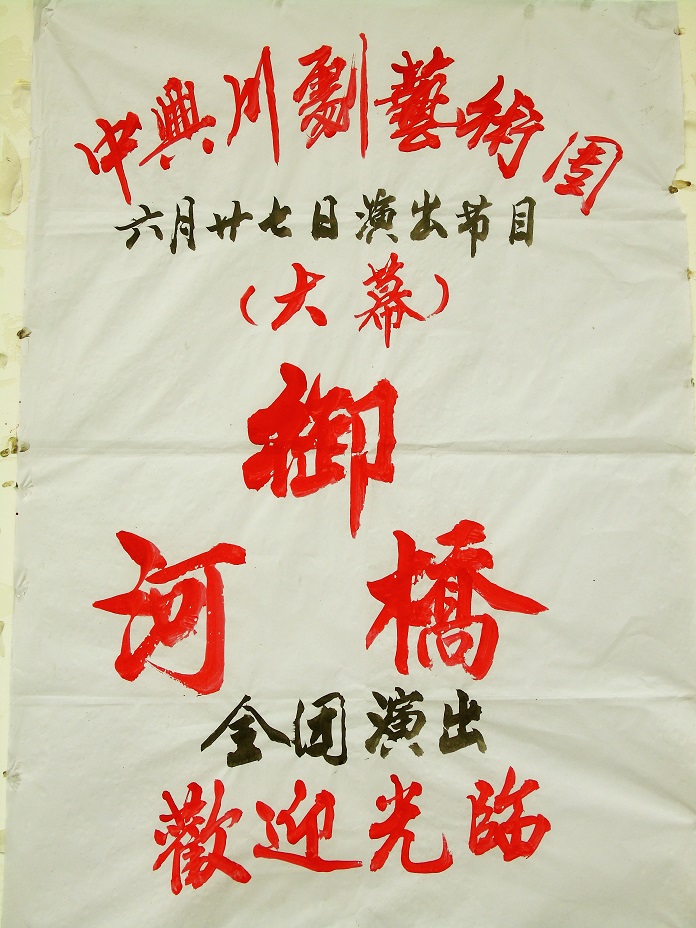 中興川劇藝術團
六月廿七日演出节目
（大幕）
御
河橋
全团演出
歡迎光臨